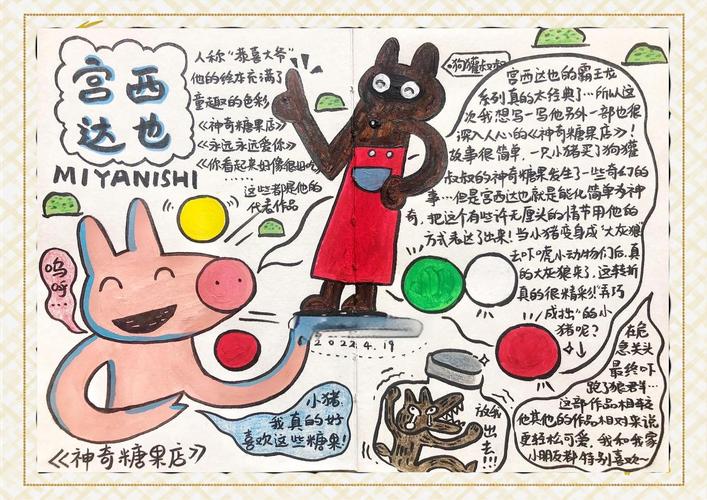 宫西
达也
MIYANISHI
人称“恭喜大爷”
他的绘本充满了
童趣的色彩
《神奇糖果店》
《永远永远爱你》
《你看起来好像很好吃》
……
这些都是他的
代表作品
狗獾叔叔
宫西达也的霸王龙
系列真的太经典了…所以这
次我想写一写他另外一部也很
深入人心的《神奇糖果店》！
故事很简单，一只小猪买了狗獾
叔叔的神奇糖果发生了一些奇幻的
事…但是宫西达也就是能化简单为神
奇，把这个有些许无厘头的情节用他的
方式表达了出来！当小猪变身成“大灰狼”
去吓唬小动物们后，真
的大灰狼来了，这转折
真的很精彩！“弄巧
成拙”的小
猪呢？
在危
急关头
最终吓
跑了狼群…
这部作品相较
他其他的作品相对来说
更轻松可爱，我和我家
小朋友都特别喜欢~
呜
呼
…
2022.4.19
小猪：
我真的好
喜欢这些糖果！
放我
出
去
!!!
《神奇糖果店》